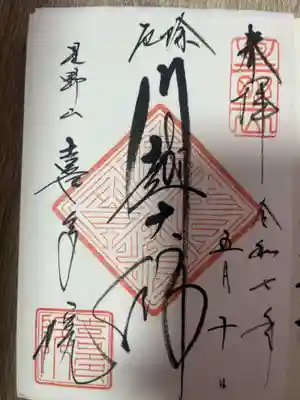 奉拝
令和七年
五月十日
厄除
川越大師
星野山
喜多院